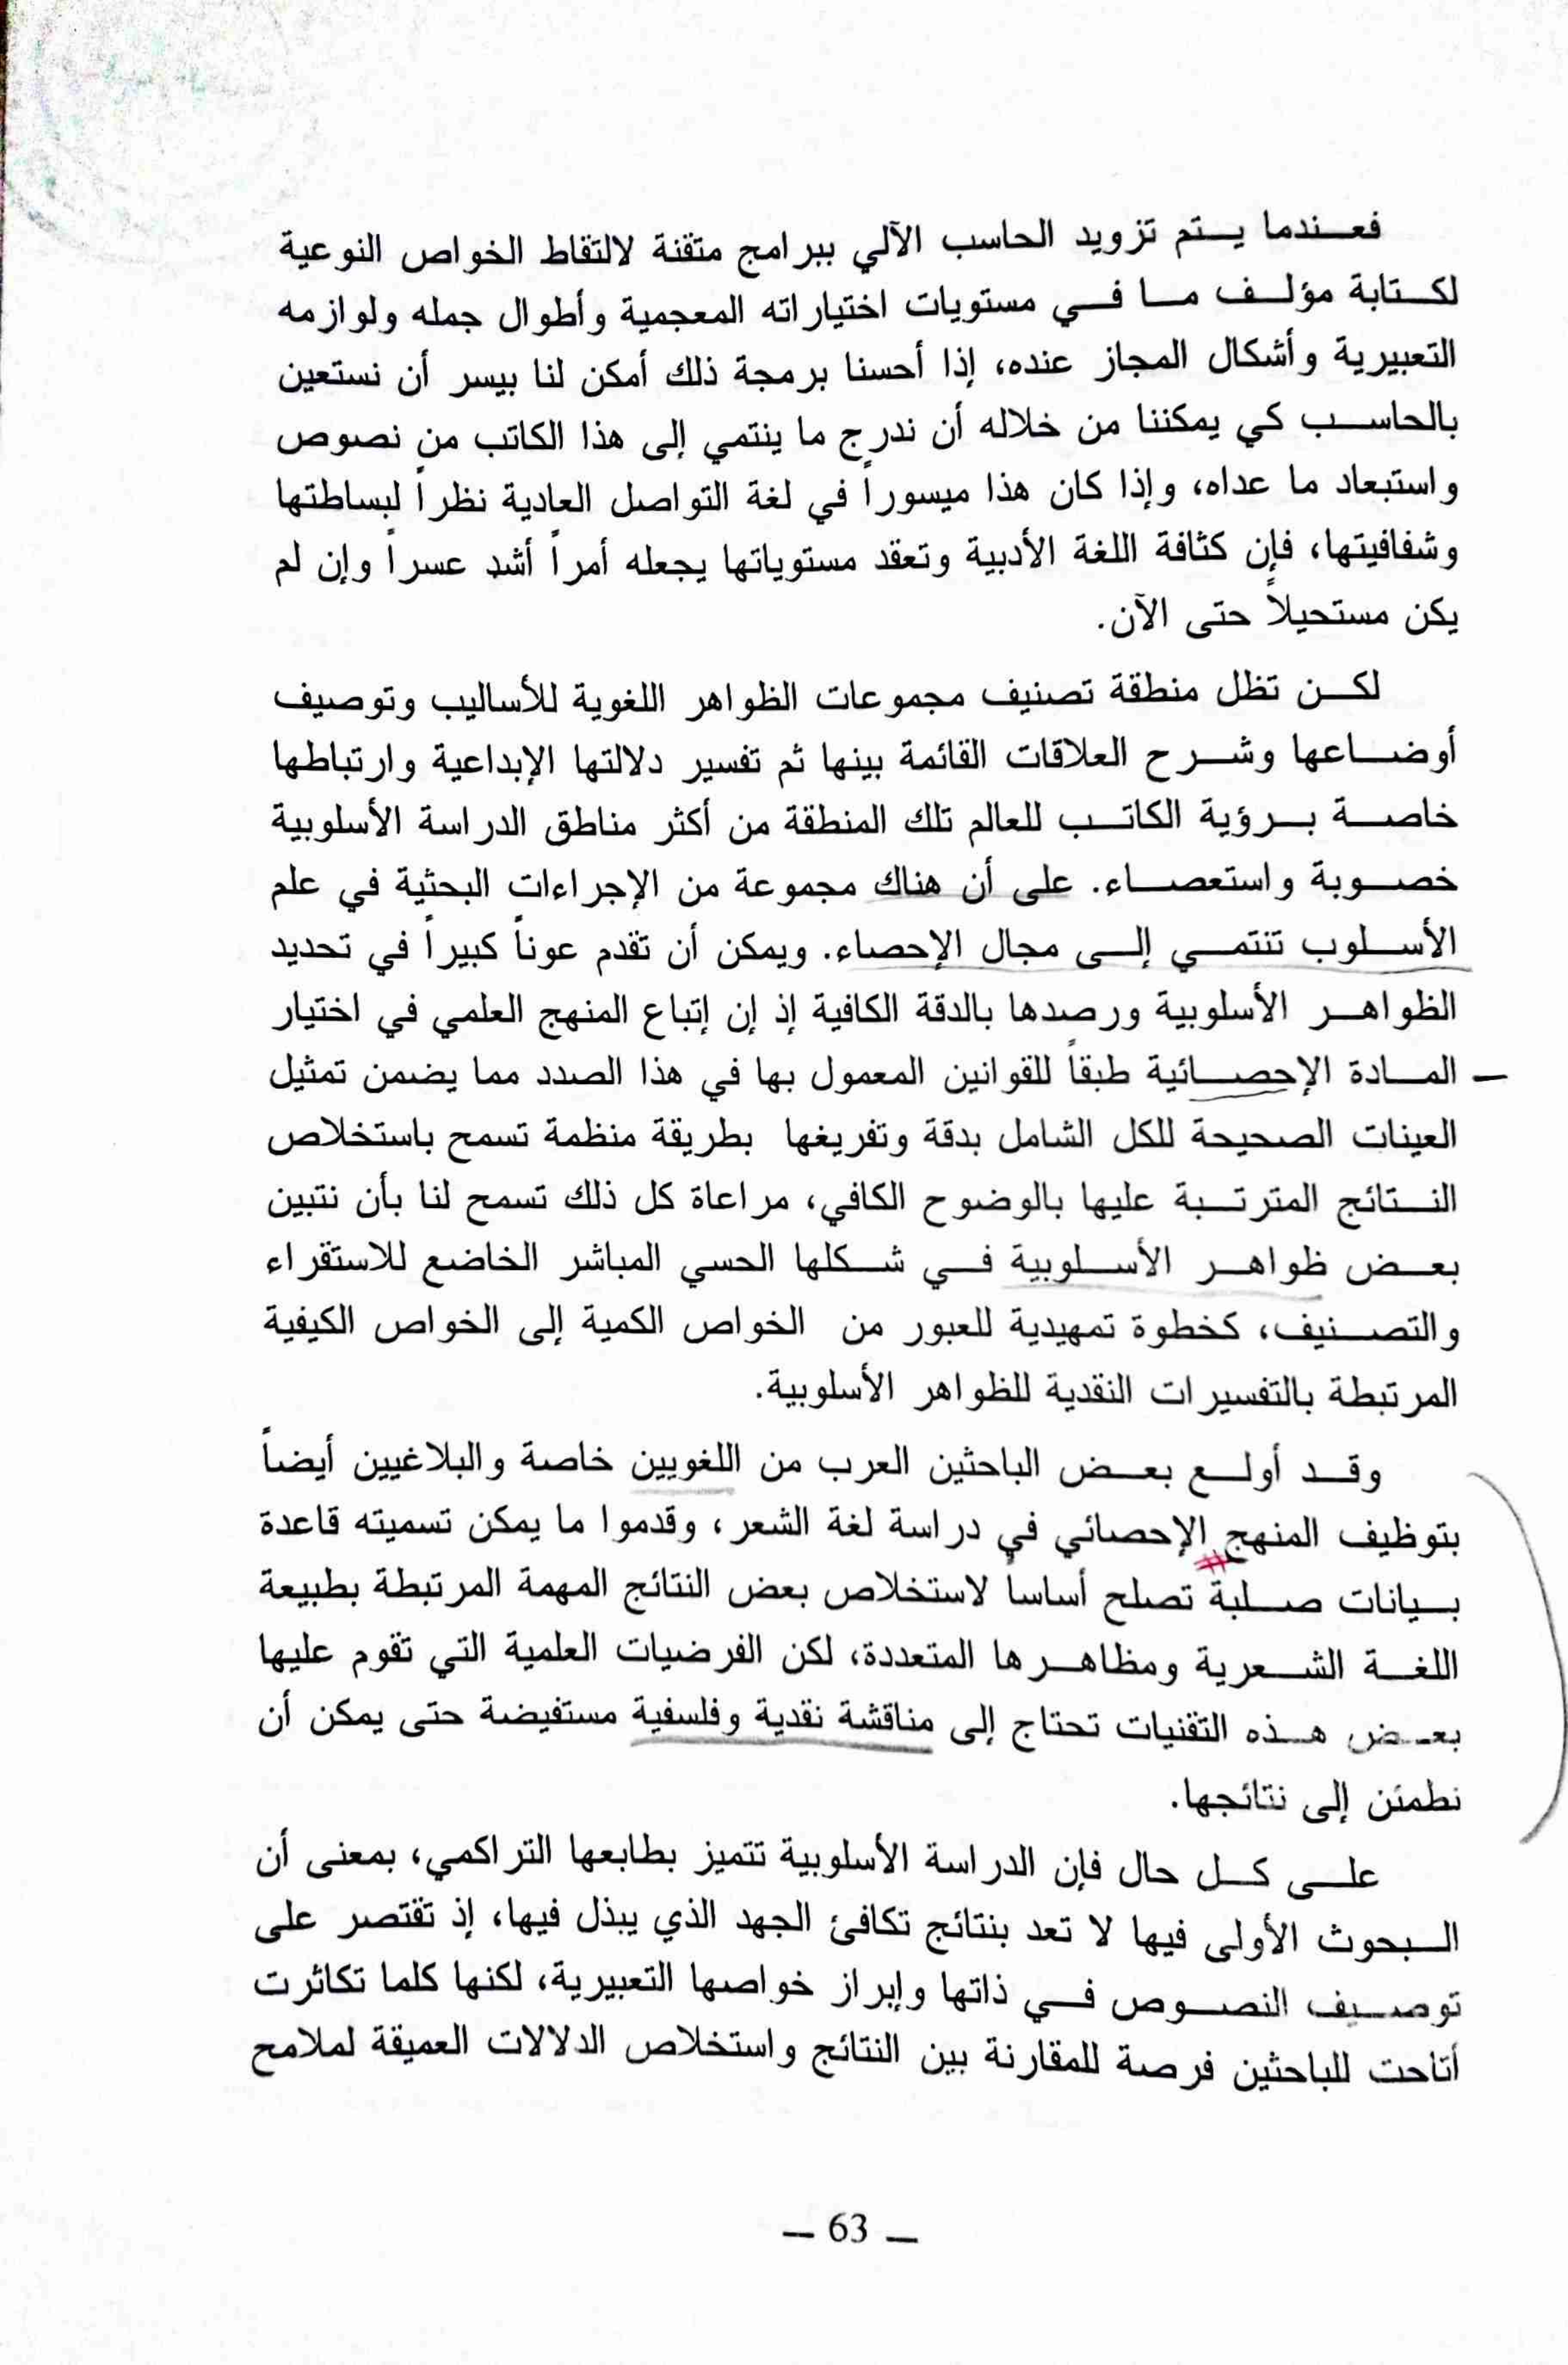 فعندما يتم تزويد الحاسب الآلي ببرامج متقنة لالتقاط الخواص النوعية
لكتابة مؤلف ما في مستويات اختياراته المعجمية وأطوال جمله ولوازمه
التعبيرية وأشكال المجاز عنده، إذا أحسنا برمجة ذلك أمكن لنا بيسر أن نستعين
بالحاسب كي يمكننا من خلاله أن ندرج ما ينتمي إلى هذا الكاتب من نصوص
واستبعاد ما عداه، وإذا كان هذا ميسوراً في لغة التواصل العادية نظراً لبساطتها
وشفافيتها، فإن كثافة اللغة الأدبية وتعقد مستوياتها يجعله أمراً أشد عسراً وإن لم
يكن مستحيلاً حتى الآن.
لكن تظل منطقة تصنيف مجموعات الظواهر اللغوية للأساليب وتوصيف
أوضاعها وشرح العلاقات القائمة بينها ثم تفسير دلالتها الإبداعية وارتباطها
خاصة برؤية الكاتب للعالم تلك المنطقة من أكثر مناطق الدراسة الأسلوبية
خصوبة واستعصاء. على أن هناك مجموعة من الإجراءات البحثية في علم
الأسلوب تنتمي إلى مجال الإحصاء. ويمكن أن تقدم عوناً كبيراً في تحديد
الظواهر الأسلوبية ورصدها بالدقة الكافية إذ إن إتباع المنهج العلمي في اختيار
المادة الإحصائية طبقاً للقوانين المعمول بها في هذا الصدد مما يضمن تمثيل
العينات الصحيحة للكل الشامل بدقة وتفريغها بطريقة منظمة تسمح باستخلاص
النتائج المترتبة عليها بالوضوح الكافي، مراعاة كل ذلك تسمح لنا بأن نتبين
بعض ظواهر الأسلوبية في شكلها الحسي المباشر الخاضع للاستقراء
والتصنيف، كخطوة تمهيدية للعبور من الخواص الكمية إلى الخواص الكيفية
المرتبطة بالتفسيرات النقدية للظواهر الأسلوبية.
وقد أولع بعض الباحثين العرب من اللغويين خاصة والبلاغيين أيضاً
بتوظيف المنهج الإحصائي في دراسة لغة الشعر، وقدموا ما يمكن تسميته قاعدة
بيانات صلبة تصلح أساساً لاستخلاص بعض النتائج المهمة المرتبطة بطبيعة
اللغة الشعرية ومظاهرها المتعددة، لكن الفرضيات العلمية التي تقوم عليها
بعض هذه التقنيات تحتاج إلى مناقشة نقدية وفلسفية مستفيضة حتى يمكن أن
نطمئن إلى نتائجها.
على كل حال فإن الدراسة الأسلوبية تتميز بطابعها التراكمي، بمعنى أن
البحوث الأولى فيها لا تعد بنتائج تكافئ الجهد الذي يبذل فيها، إذ تقتصر على
توصيف النصوص في ذاتها وإبراز خواصها التعبيرية، لكنها كلما تكاثرت
أتاحت للباحثين فرصة للمقارنة بين النتائج واستخلاص الدلالات العميقة لملامح
— 63 —